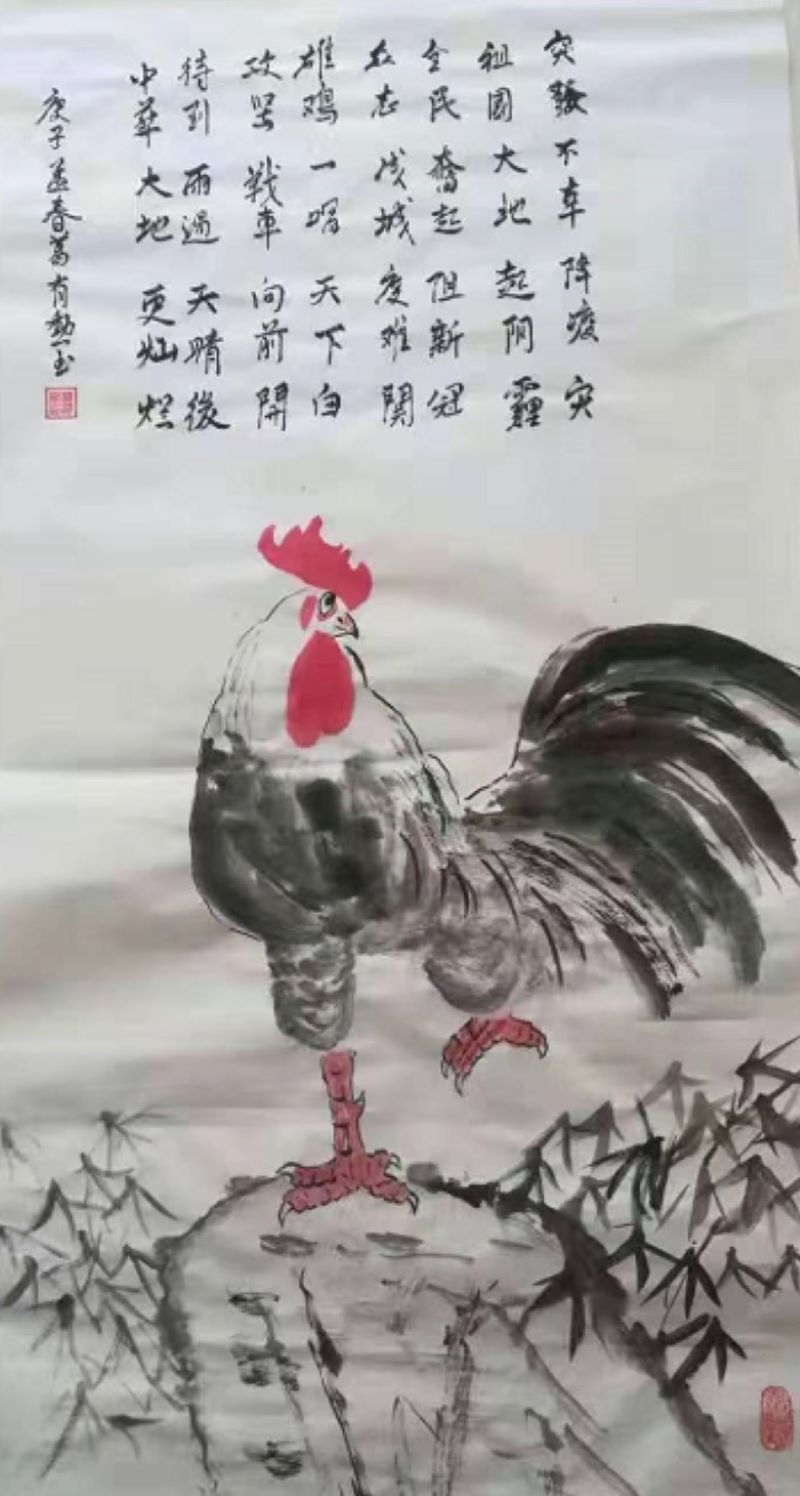 突發不幸降疫灾
祖國大地起阴霾
全民奮起阻新冠
众志成城度难関
雄鸡一唱天下白
攻坚戰車向前開
待到雨過天晴後
中华大地更灿烂
庚子孟春葛有勤